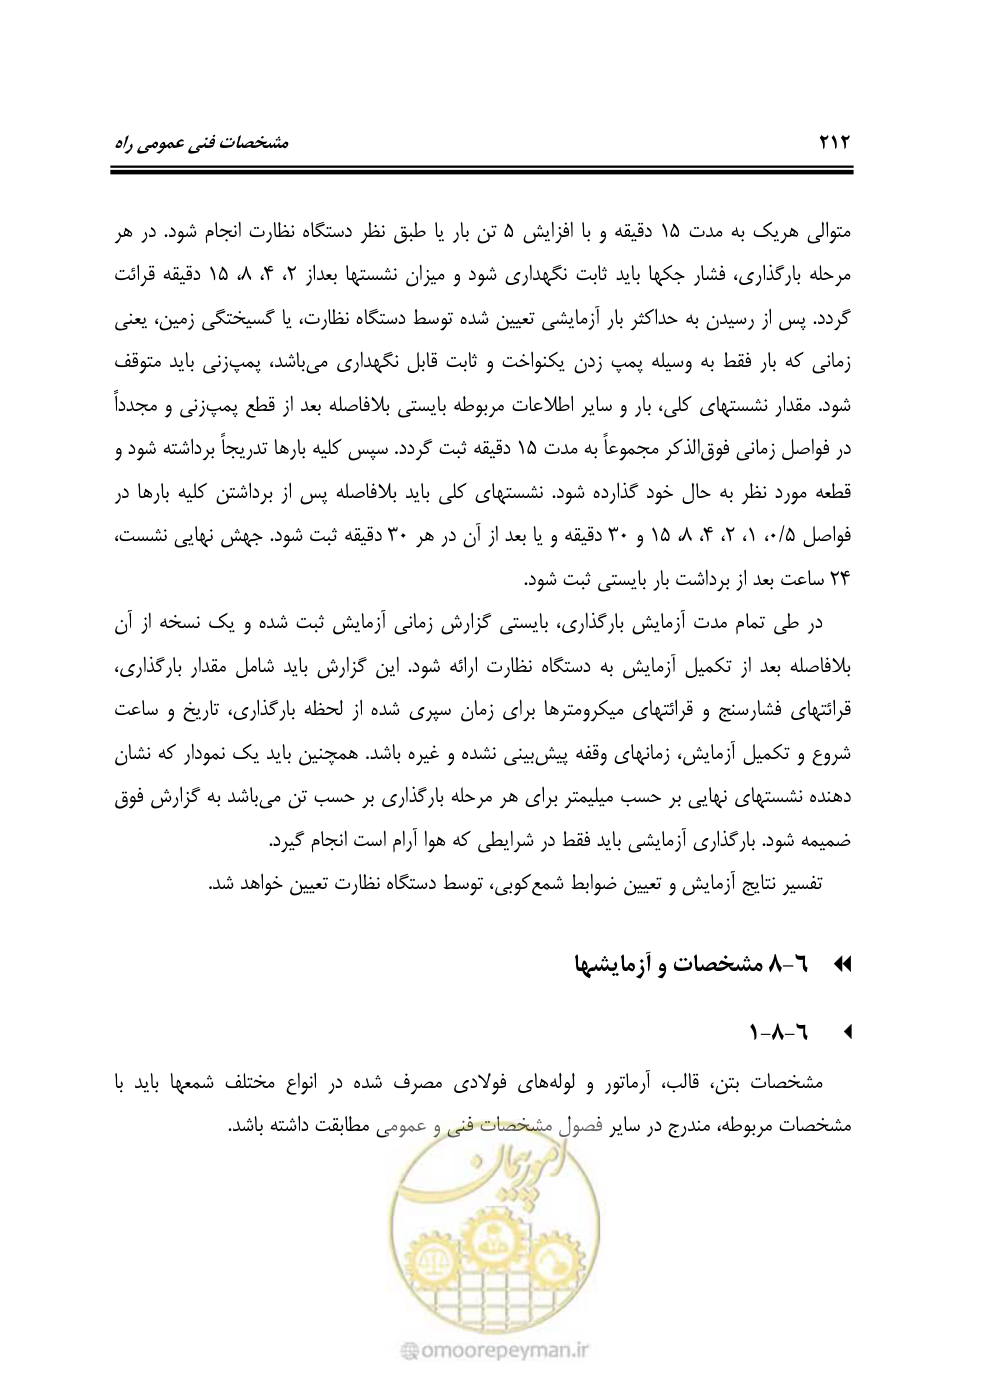 ۲۱۲ مشخصات فنی عمومی راه
متوالی هریک به مدت ۱۵ دقیقه و با افزایش ۵ تن بار یا طبق نظر دستگاه نظارت انجام شود. در هر
مرحله بارگذاری، فشار جکها باید ثابت نگهداری شود و میزان نشستها بعداز ۲، ۴، ۸، ۱۵ دقیقه قرائت
گردد. پس از رسیدن به حداکثر بار آزمایشی تعیین شده توسط دستگاه نظارت، یا گسیختگی زمین، یعنی
زمانی که بار فقط به وسیله پمپ زدن یکنواخت و ثابت قابل نگهداری می‌باشد، پمپ‌زنی باید متوقف
شود. مقدار نشستهای کلی، بار و سایر اطلاعات مربوطه بایستی بلافاصله بعد از قطع پمپ‌زنی و مجدداً
در فواصل زمانی فوق‌الذکر مجموعاً به مدت ۱۵ دقیقه ثبت گردد. سپس کلیه بارها تدریجاً برداشته شود و
قطعه مورد نظر به حال خود گذارده شود. نشستهای کلی باید بلافاصله پس از برداشتن کلیه بارها در
فواصل ۰/۵، ۱، ۲، ۴، ۸، ۱۵ و ۳۰ دقیقه و یا بعد از آن در هر ۳۰ دقیقه ثبت شود. جهش نهایی نشست،
۲۴ ساعت بعد از برداشت بار بایستی ثبت شود.
در طی تمام مدت آزمایش بارگذاری، بایستی گزارش زمانی آزمایش ثبت شده و یک نسخه از آن
بلافاصله بعد از تکمیل آزمایش به دستگاه نظارت ارائه شود. این گزارش باید شامل مقدار بارگذاری،
قرائتهای فشارسنج و قرائتهای میکرومترها برای زمان سپری شده از لحظه بارگذاری، تاریخ و ساعت
شروع و تکمیل آزمایش، زمانهای وقفه پیش‌بینی نشده و غیره باشد. همچنین باید یک نمودار که نشان
دهنده نشستهای نهایی بر حسب میلیمتر برای هر مرحله بارگذاری بر حسب تن می‌باشد به گزارش فوق
ضمیمه شود. بارگذاری آزمایشی باید فقط در شرایطی که هوا آرام است انجام گیرد.
تفسیر نتایج آزمایش و تعیین ضوابط شمع‌کوبی، توسط دستگاه نظارت تعیین خواهد شد.
۶-۸ مشخصات و آزمایشها
۶-۸-۱
مشخصات بتن، قالب، آرماتور و لوله‌های فولادی مصرف شده در انواع مختلف شمعها باید با
مشخصات مربوطه، مندرج در سایر فصول مشخصات فنی و عمومی مطابقت داشته باشد.
امور پیمان
@omoorepeyman.ir